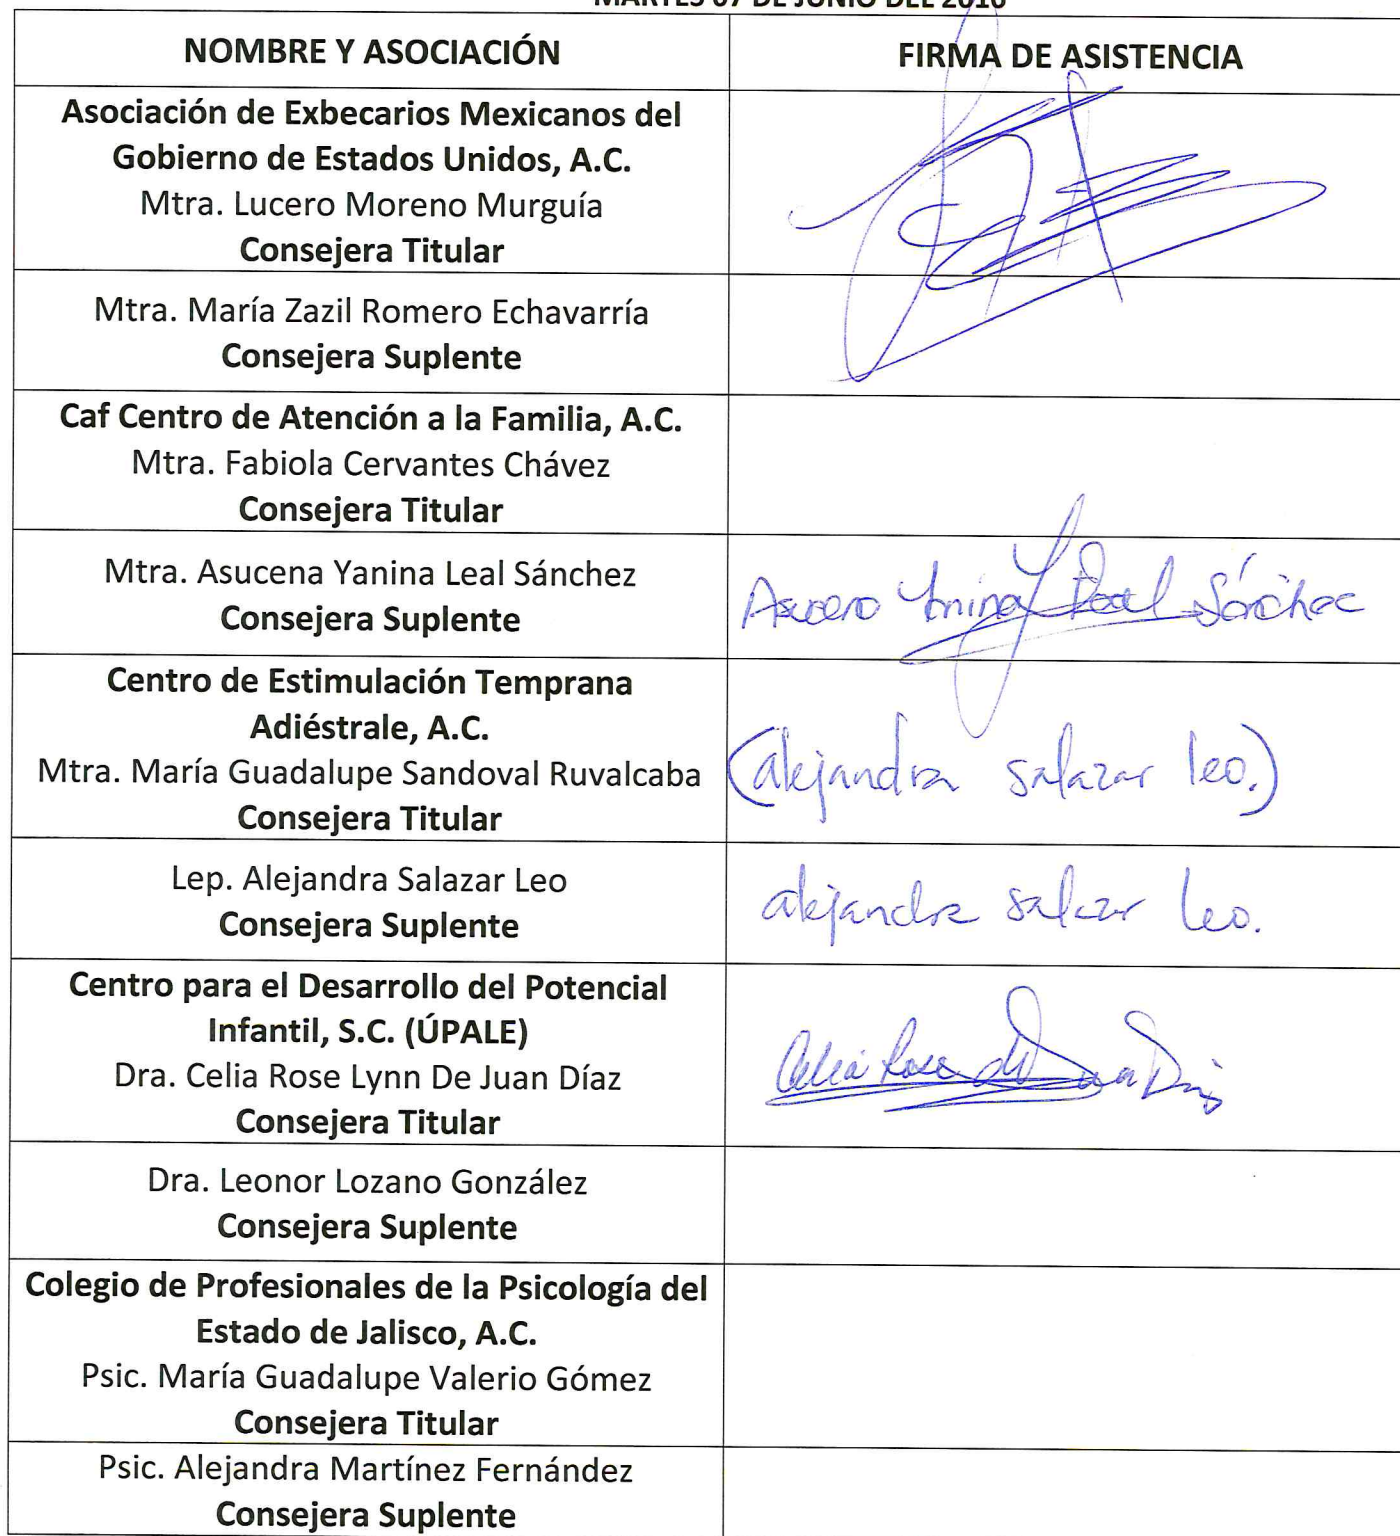 MARTES 07 DE JUNIO DEL 2016
NOMBRE Y ASOCIACIÓN
FIRMA DE ASISTENCIA
Asociación de Exbecarios Mexicanos del
Gobierno de Estados Unidos, A.C.
Mtra. Lucero Moreno Murguía
Consejera Titular
Mtra. María Zazil Romero Echavarría
Consejera Suplente
Caf Centro de Atención a la Familia, A.C.
Mtra. Fabiola Cervantes Chávez
Consejera Titular
Mtra. Asucena Yanina Leal Sánchez
Consejera Suplente
Asucena Yanina Leal Sánchez
Centro de Estimulación Temprana
Adiéstrale, A.C.
Mtra. María Guadalupe Sandoval Ruvalcaba
Consejera Titular
(alejandra salazar leo.)
Lep. Alejandra Salazar Leo
Consejera Suplente
alejandra salazar leo.
Centro para el Desarrollo del Potencial
Infantil, S.C. (ÚPALE)
Dra. Celia Rose Lynn De Juan Díaz
Consejera Titular
Celia Rose de Juan Díaz
Dra. Leonor Lozano González
Consejera Suplente
Colegio de Profesionales de la Psicología del
Estado de Jalisco, A.C.
Psic. María Guadalupe Valerio Gómez
Consejera Titular
Psic. Alejandra Martínez Fernández
Consejera Suplente